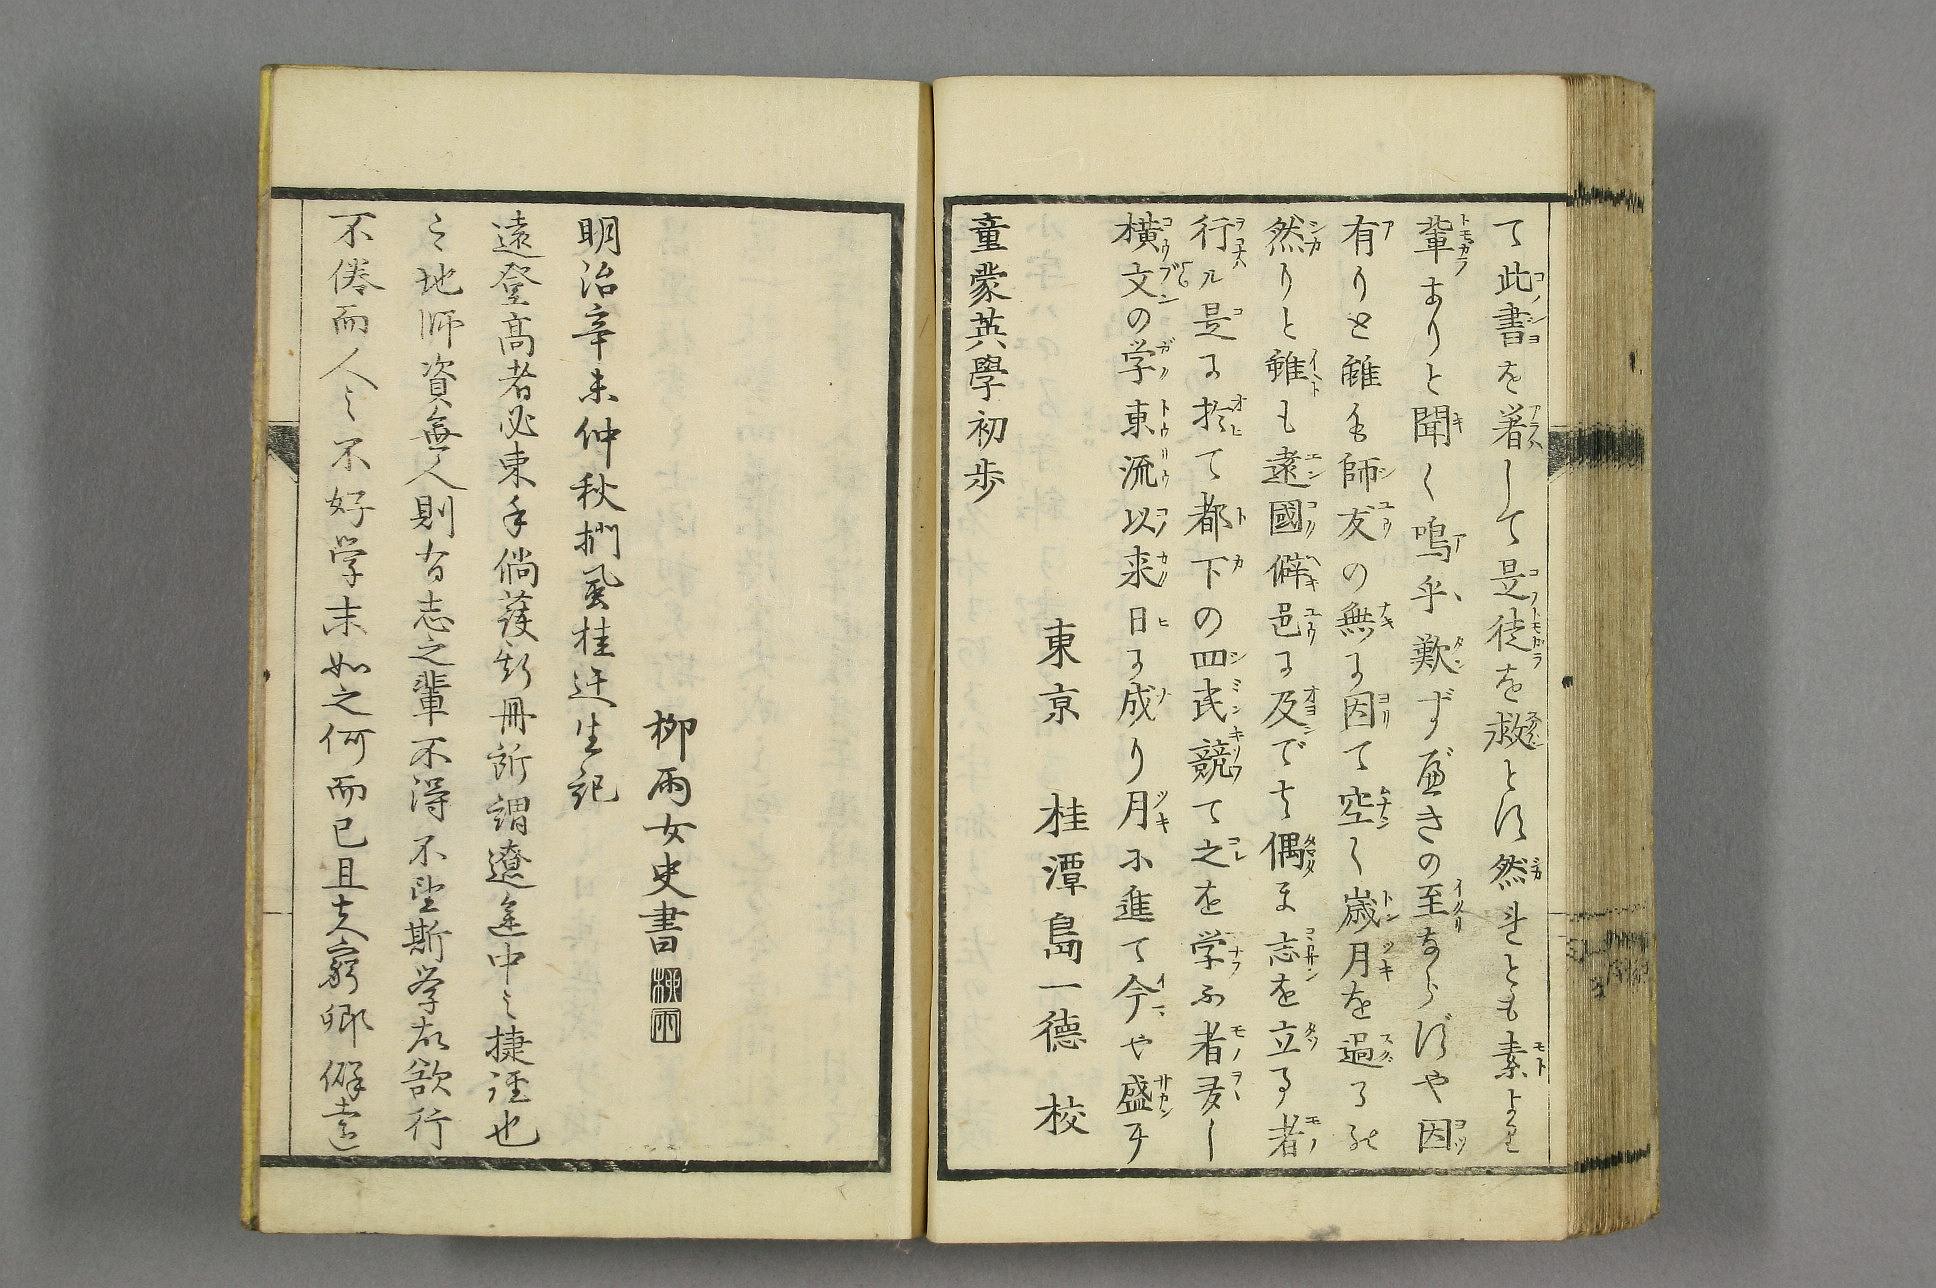 不倦而人之不好学末如之何而已且夫窮郷僻遠
之地師資無人則有志之輩不得不望斯学故欲行
遠登髙者必束手倘獲斯冊所謂遼遠中之捷徑也
明治辛未仲秋捫風桂迂生記
柳雨女史書
柳雨
童蒙英學初歩
東京 桂潭島一德 校
横文の学東流以来日に成り月に進て今や盛ヲ
行ル是に於て都下の四民競て之を学ふ者多し
然りと雖も遠國僻邑に及でき偶ま志を立る者
有りと雖も師友の無に因て空く歳月を過るの
輩ありと聞く嗚乎歎ずべきの至ならずや因
て此書を著して是徒を救とす然れとも素より